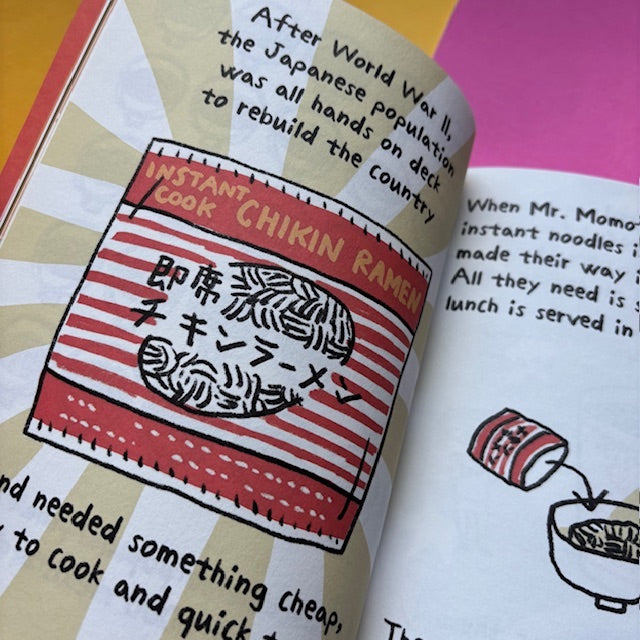 After World War II,
the Japanese population
was all hands on deck
to rebuild the country
INSTANT
COOK
CHIKIN RAMEN
即席
チキンラーメン
needed something cheap,
to cook and quick
When Mr.
instant noodles
made their way
All they need is
lunch is served in